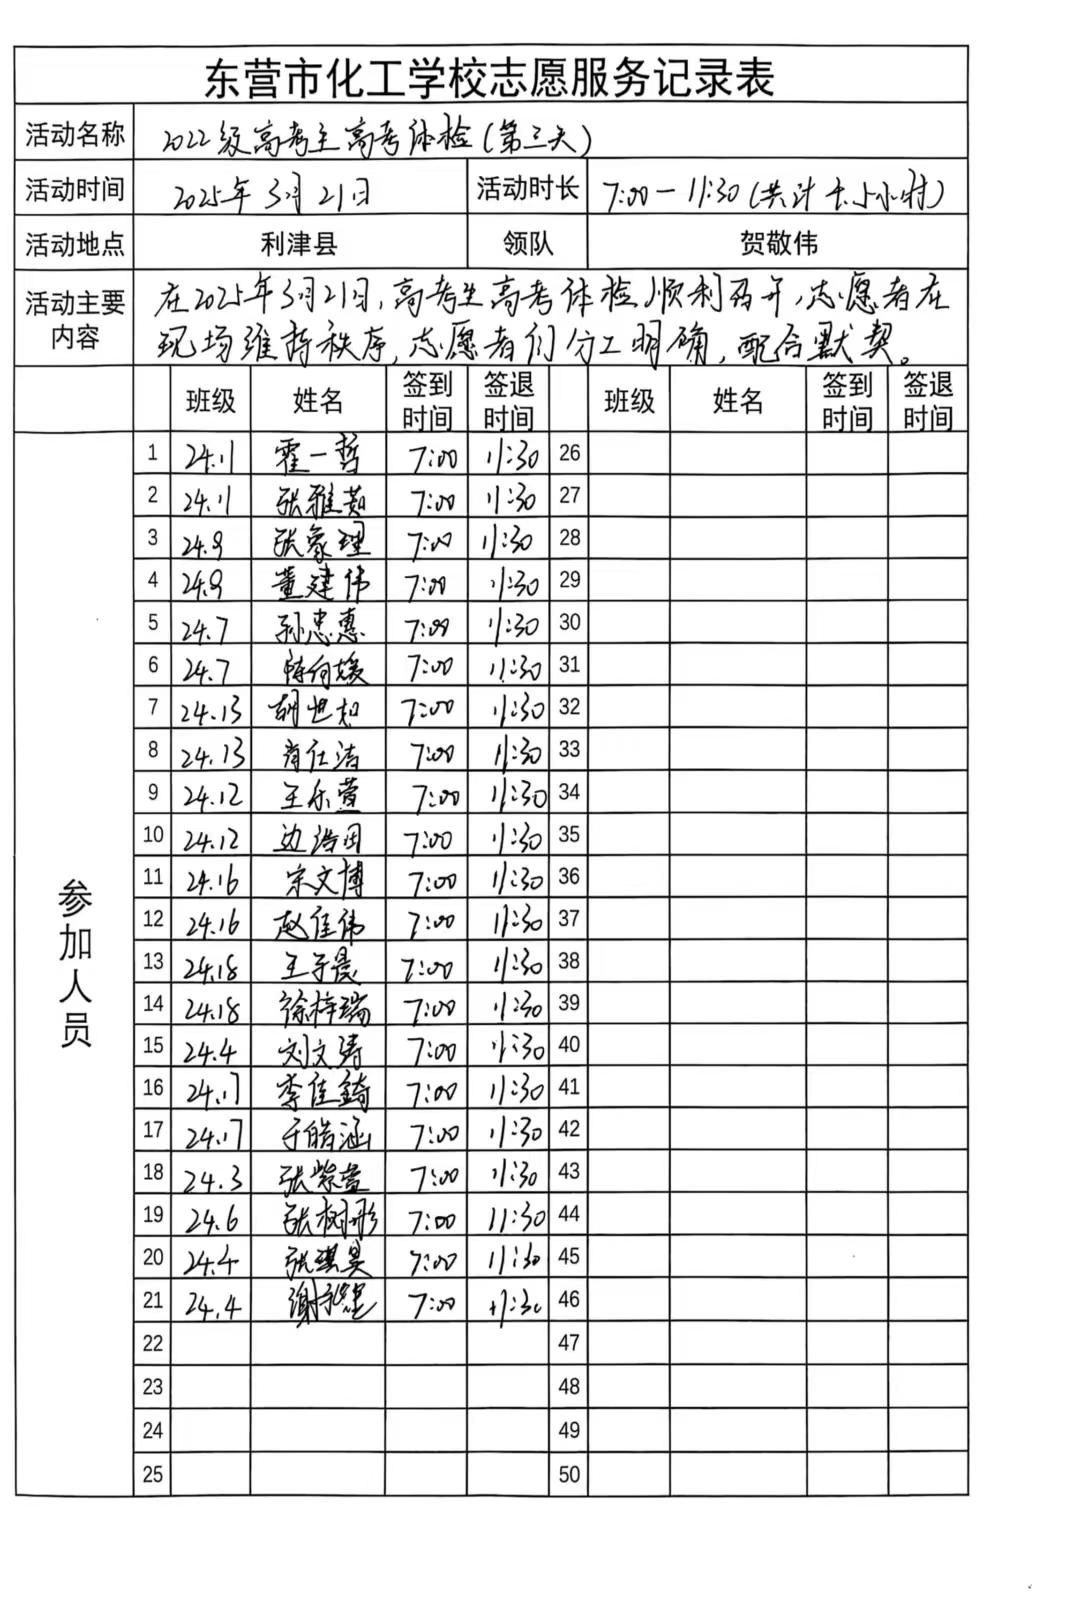 东营市化工学校志愿服务记录表
活动名称 2022级高考生高考体检(第三天)
活动时间 2025年3月21日 活动时长 7:00-11:30(共计4.5小时)
活动地点 利津县 领队 贺敬伟
活动主要内容 在2025年3月21日,高考生高考体检顺利召开,志愿者在
现场维持秩序,志愿者们分工明确,配合默契。
班级 姓名 签到时间 签退时间 班级 姓名 签到时间 签退时间
参加人员
1 24.11 霍一哲 7:00 11:30 26
2 24.11 张雅茹 7:00 11:30 27
3 24.9 张家理 7:00 11:30 28
4 24.9 董建伟 7:00 11:30 29
5 24.7 孙忠惠 7:00 11:30 30
6 24.7 7:00 11:30 31
7 24.13 胡世和 7:00 11:30 32
8 24.13 肖仕洁 7:00 11:30 33
9 24.12 王乐萱 7:00 11:30 34
10 24.12 边浩田 7:00 11:30 35
11 24.16 宋文博 7:00 11:30 36
12 24.16 赵佳伟 7:00 11:30 37
13 24.18 王子晨 7:00 11:30 38
14 24.18 徐梓瑞 7:00 11:30 39
15 24.4 刘文涛 7:00 11:30 40
16 24.17 李佳錡 7:00 11:30 41
17 24.17 于皓涵 7:00 11:30 42
18 24.3 张紫萱 7:00 11:30 43
19 24.6 张树彤 7:00 11:30 44
20 24.4 张琪昊 7:00 11:30 45
21 24.4 7:00 11:30 46
22 47
23 48
24 49
25 50